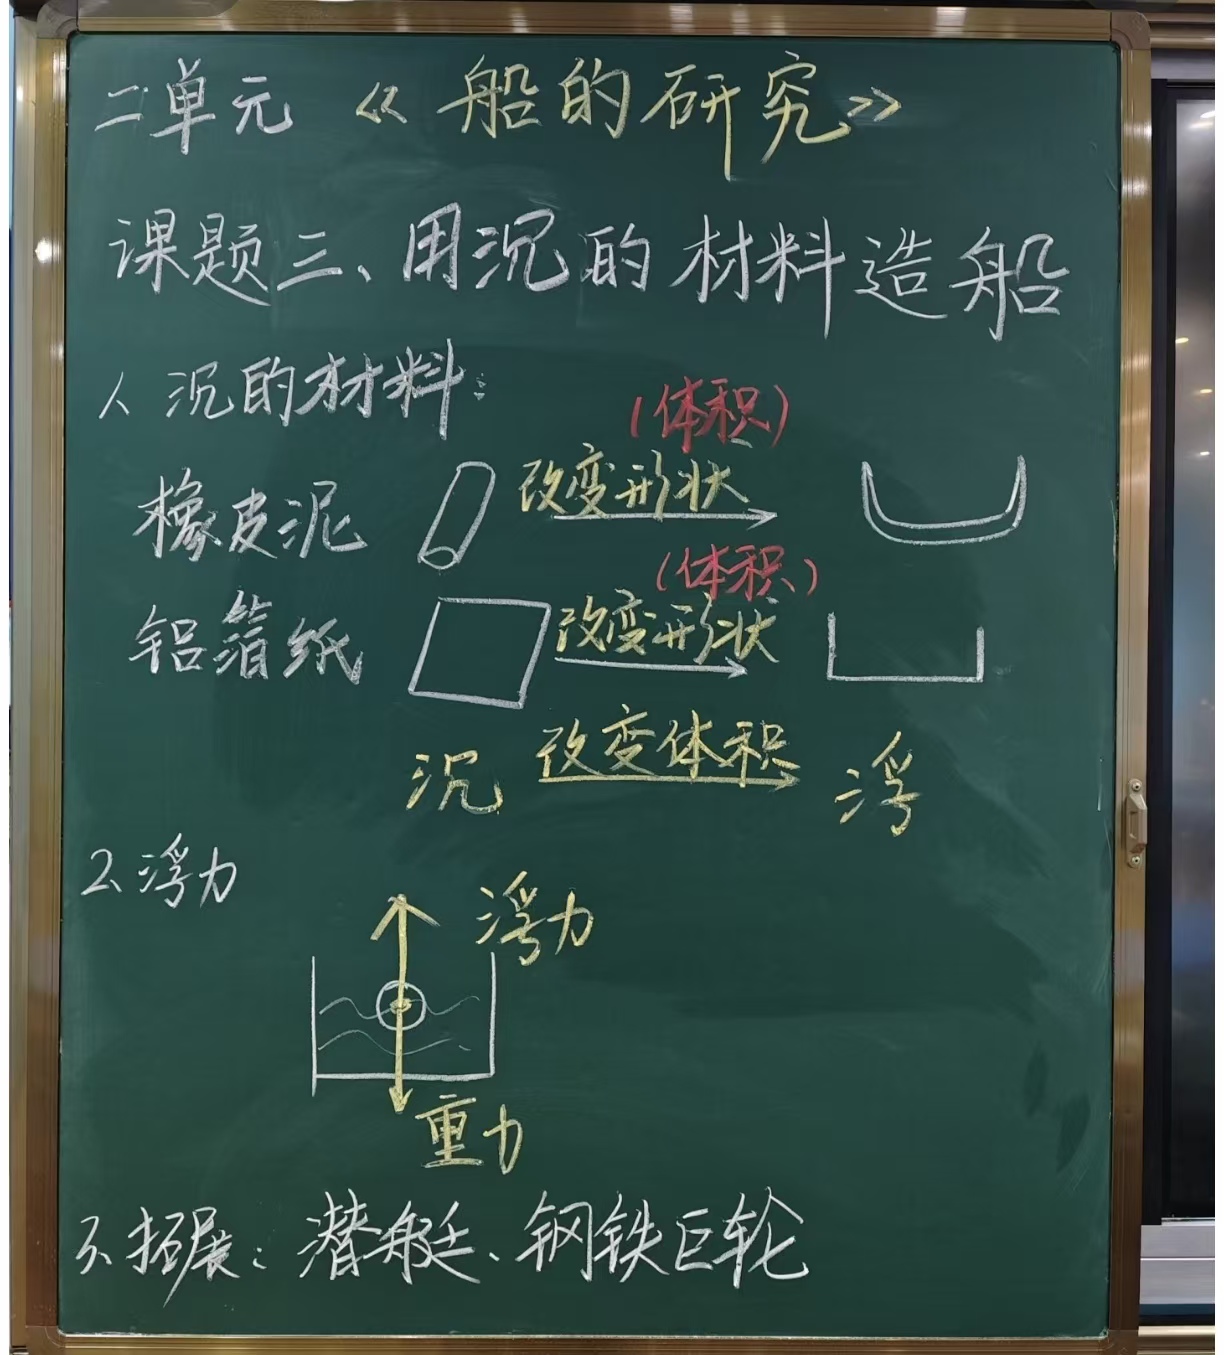 二单元《船的研究》
课题三、用沉的材料造船
1、沉的材料:
(体积)
橡皮泥 改变形状
(体积)
铝箔纸 改变形状
沉 改变体积 浮
2、浮力
浮力
重力
3、拓展:潜艇、钢铁巨轮